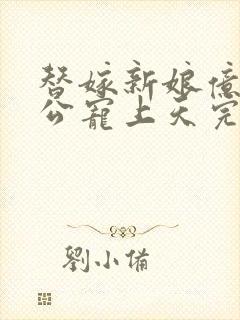 替嫁新娘億
公寵上天完
劉小備